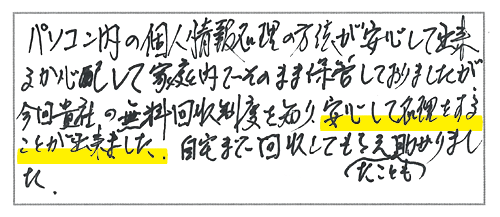 パソコン内の個人情報処理の方法が安心して出来
るか心配して家庭内でそのまま保管しておりましたが
今回貴社の無料回収制度を知り、安心して処理をする
ことが出来ました。自宅まで回収してもらえ助かりまし
た。(たことも)